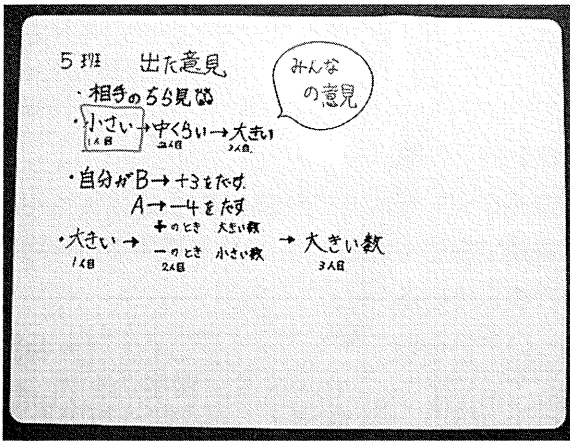 5班 出た意見
みんな
の意見
・相手のちら見
・小さい→中くらい→大きい
1人目 2人目 3人目
・自分がB→+3をたす。
A→-4をたす
・大きい→ +のとき 大きい数
-のとき 小さい数 → 大きい数
1人目 2人目 3人目